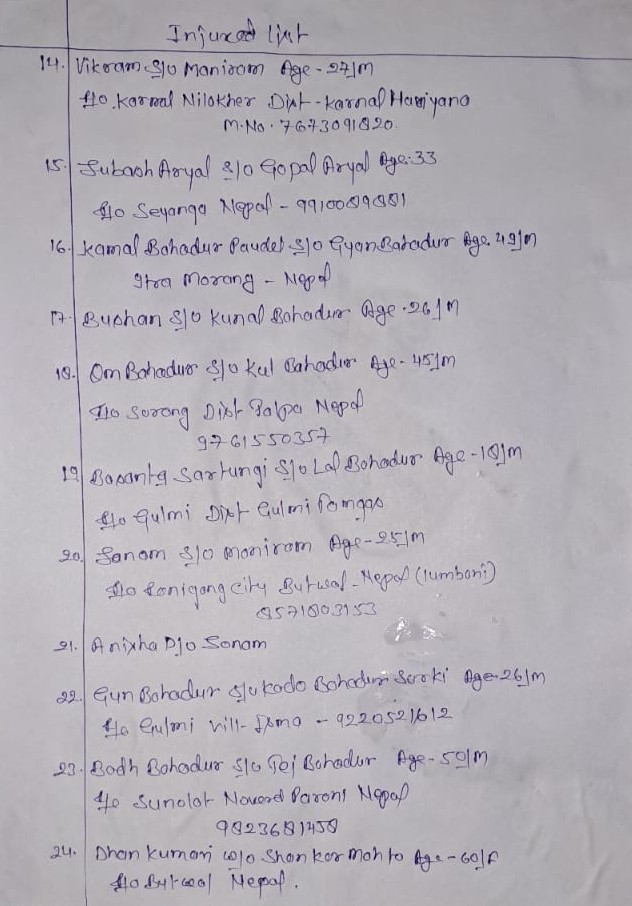 Injured List
14. Vikram S/o Maniram Age - 27/M
R/o. Karnal Nilokher Dist - Karnal Hariyana
M.No. 7673091820.
15. Subash Aryal S/o Gopal Aryal Age. 33
R/o Seyanga Nepal - 9910089881
16. Kamal Bahadur Paudel S/o Gyan Bahadur Age. 49/M
Itra Morang - Nepal
17. Bushan S/o Kunal Bahadur Age - 26/M
18. Om Bahadur S/o Kul Bahadur Age - 45/M
R/o Sorong Dist Palpa Nepal
9761550357
19 Basanta Sartungi S/o Lal Bahadur Age - 18/M
R/o Gulmi Dist Gulmi Tamgas
20. Sanam S/o Maniram Age - 25/M
R/o Ranigang City Butwal - Nepal (Lumbani)
8571803153
21. Anixha D/o Sonam
22. Gun Bahadur S/o Kado Bahadur Sarki Age - 26/M
R/o Gulmi Vill- - 9220521612
23. Bodh Bahadur S/o Tej Bahadur Age - 50/M
R/o Sunolat Paroni Nepal
9823681458
24. Dhan Kumari W/o Shankar Mahto Age - 60/F
R/o Butwal Nepal.